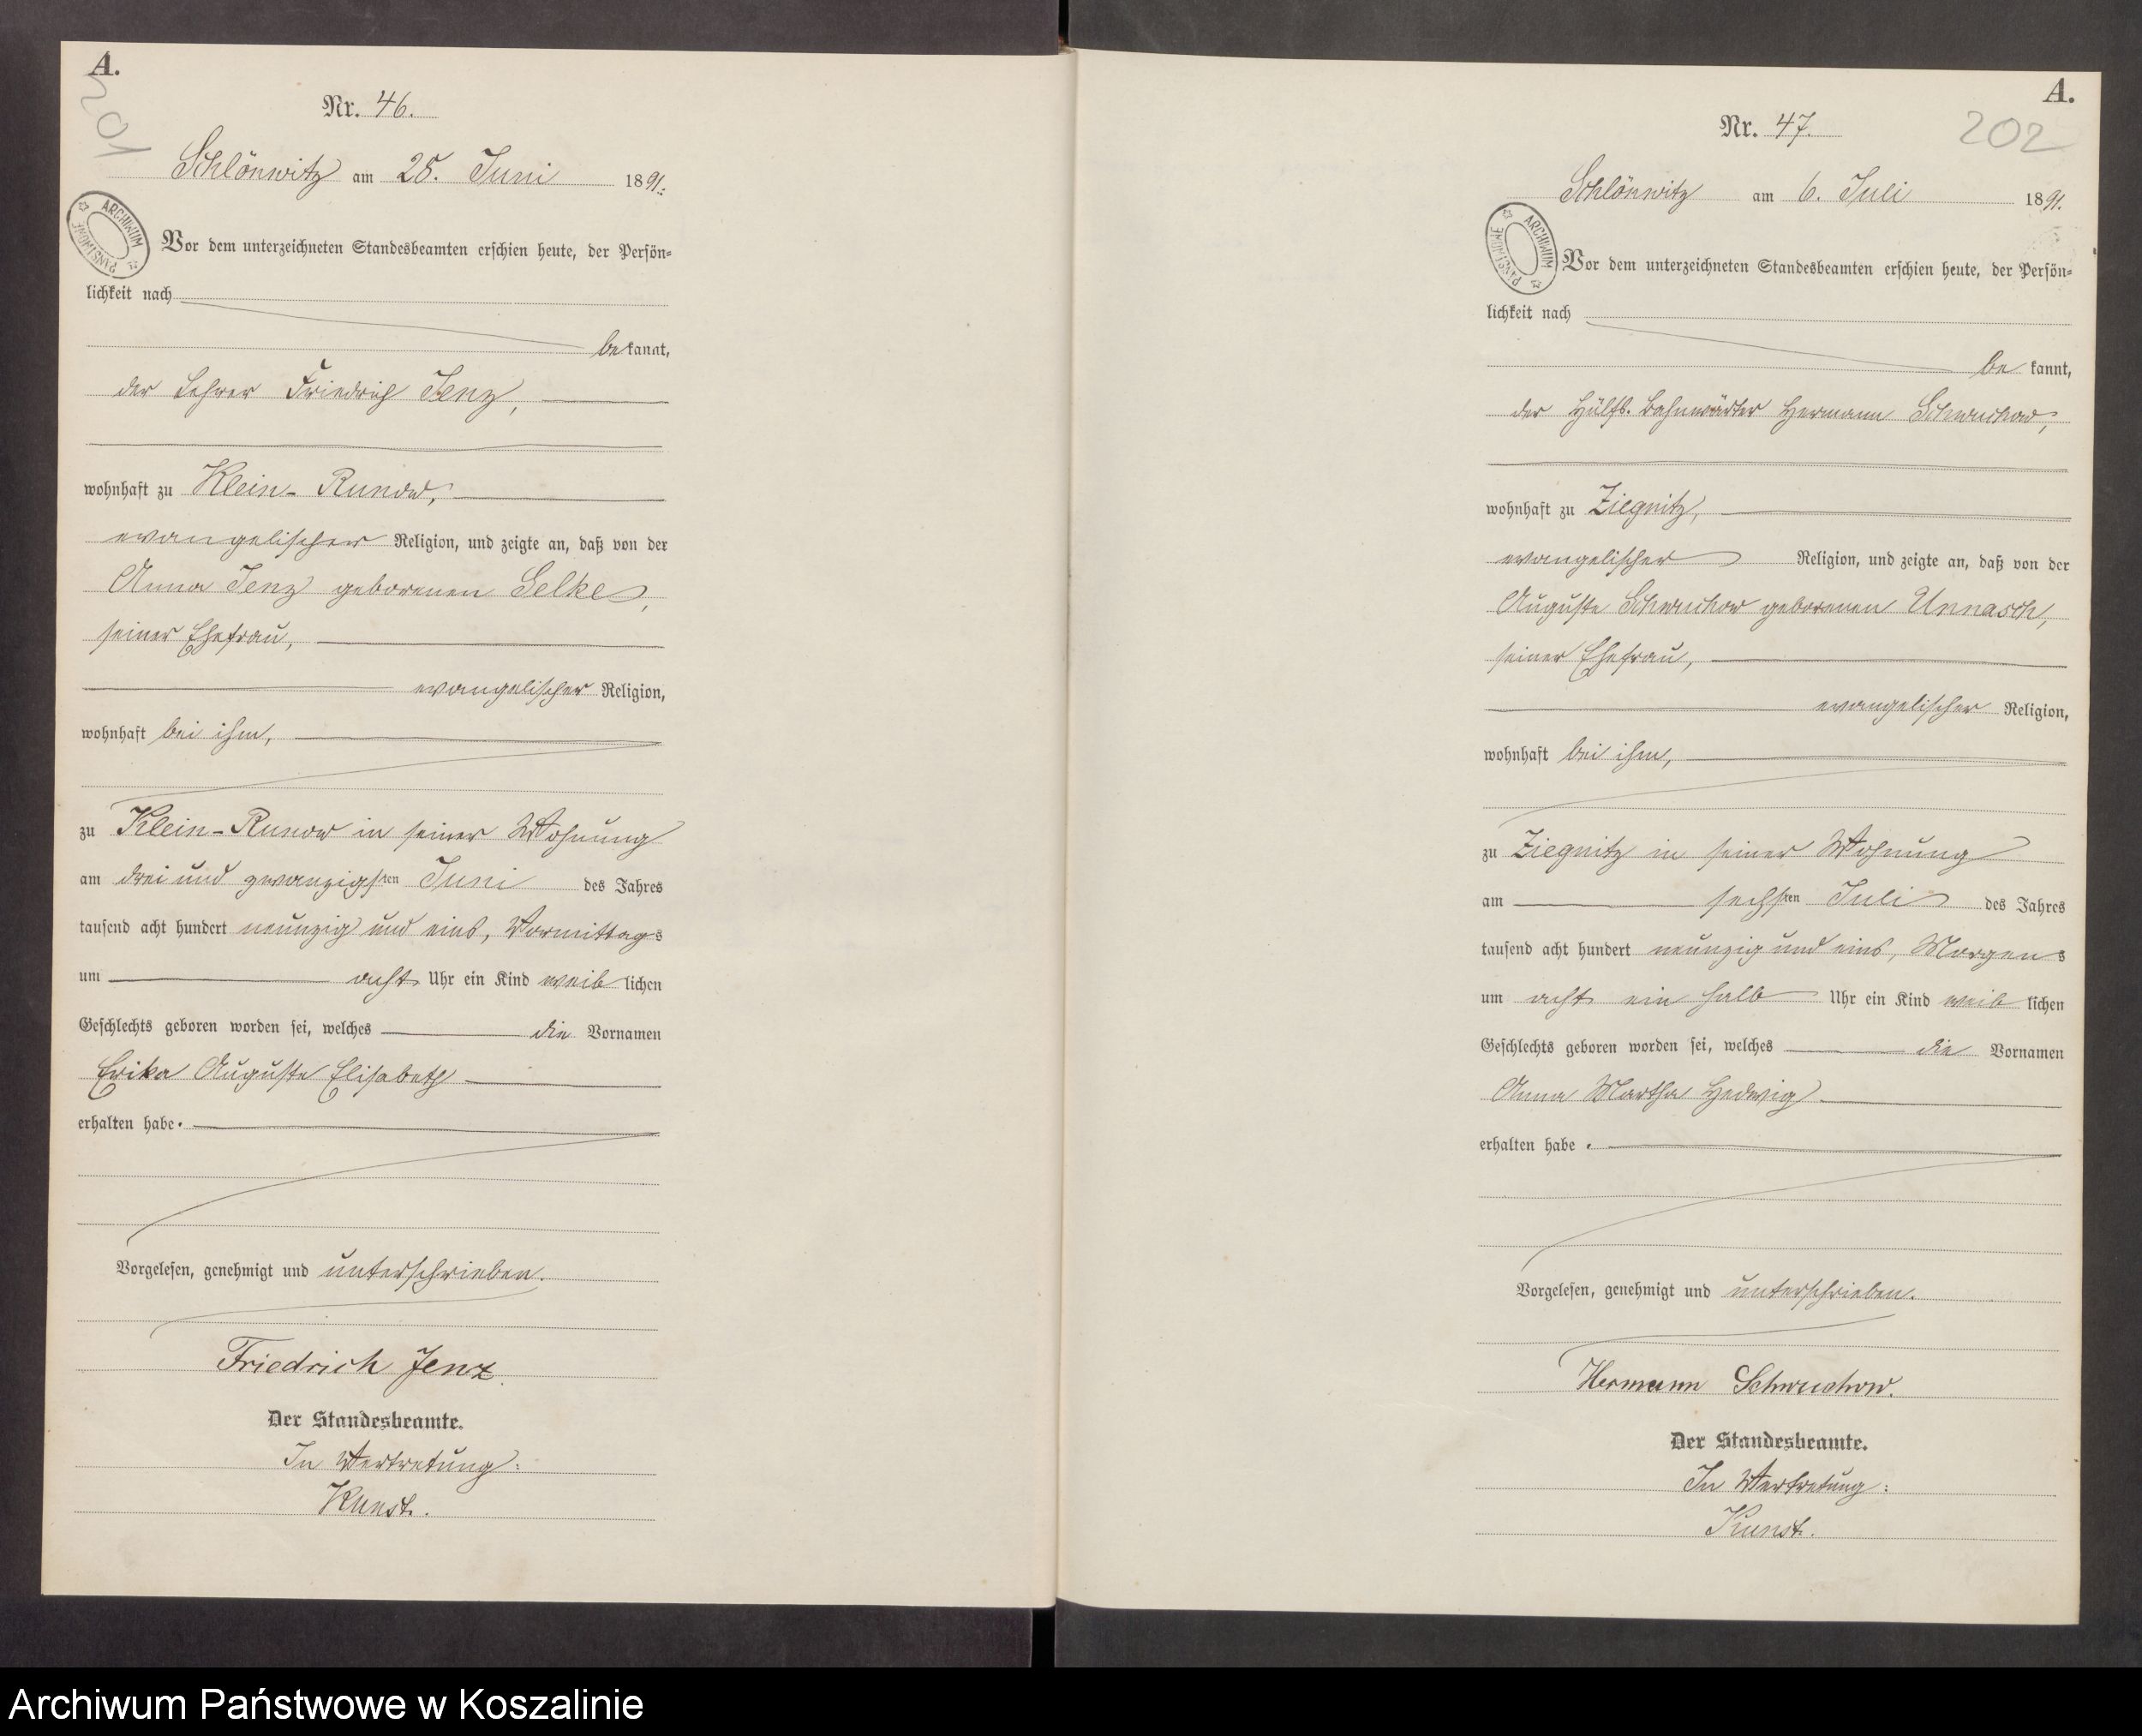 A.
201
Nr. 46.
Schlönwitz am 25. Juni 1891.
ARCHIWUM PAŃSTWOWE
Vor dem unterzeichneten Standesbeamten erschien heute, der Persön-
lichkeit nach
bekannt,
der Lehrer Friedrich Jenz,
wohnhaft zu Klein-Runow,
evangelischer Religion, und zeigte an, daß von der
Anna Jenz geborenen Selke,
seiner Ehefrau,
evangelischer Religion,
wohnhaft bei ihm,
zu Klein-Runow in seiner Wohnung
am drei und zwanzigsten Juni des Jahres
tausend acht hundert neunzig und eins, Vormittags
um acht Uhr ein Kind weiblichen
Geschlechts geboren worden sei, welches die Vornamen
Erika Auguste Elisabeth
erhalten habe.
Vorgelesen, genehmigt und unterschrieben.
Friedrich Jenz.
Der Standesbeamte.
In Vertretung:
Kunst.
A.
202
Nr. 47.
Schlönwitz am 6. Juli 1891.
ARCHIWUM PAŃSTWOWE
Vor dem unterzeichneten Standesbeamten erschien heute, der Persön-
lichkeit nach
bekannt,
der Hülfs-Bahnwärter Hermann Schwuchow,
wohnhaft zu Ziegnitz,
evangelischer Religion, und zeigte an, daß von der
Auguste Schwuchow geborenen Unnasch,
seiner Ehefrau,
evangelischer Religion,
wohnhaft bei ihm,
zu Ziegnitz in seiner Wohnung
am sechsten Juli des Jahres
tausend acht hundert neunzig und eins, Morgens
um acht ein halb Uhr ein Kind weiblichen
Geschlechts geboren worden sei, welches die Vornamen
Anna Martha Hedwig
erhalten habe.
Vorgelesen, genehmigt und unterschrieben.
Hermann Schwuchow.
Der Standesbeamte.
In Vertretung:
Kunst.
Archiwum Państwowe w Koszalinie